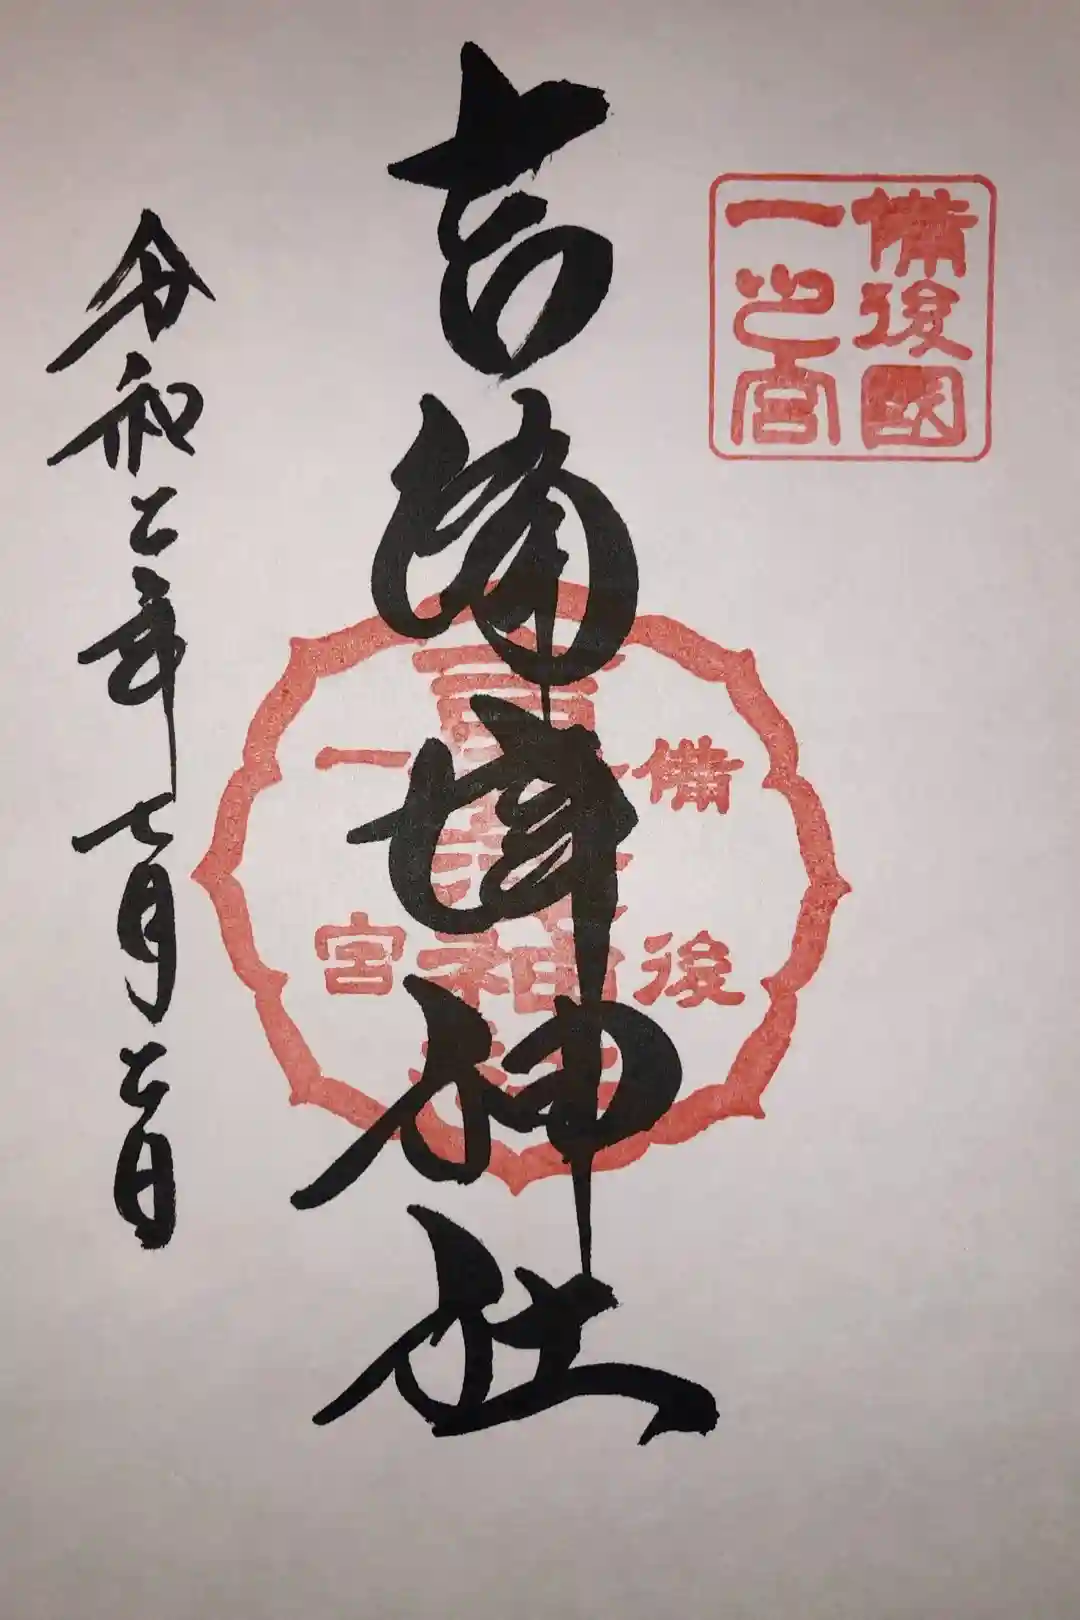 備後國
一之宮
吉備津神社
備後
一宮
吉備津神社
令和二年七月二日